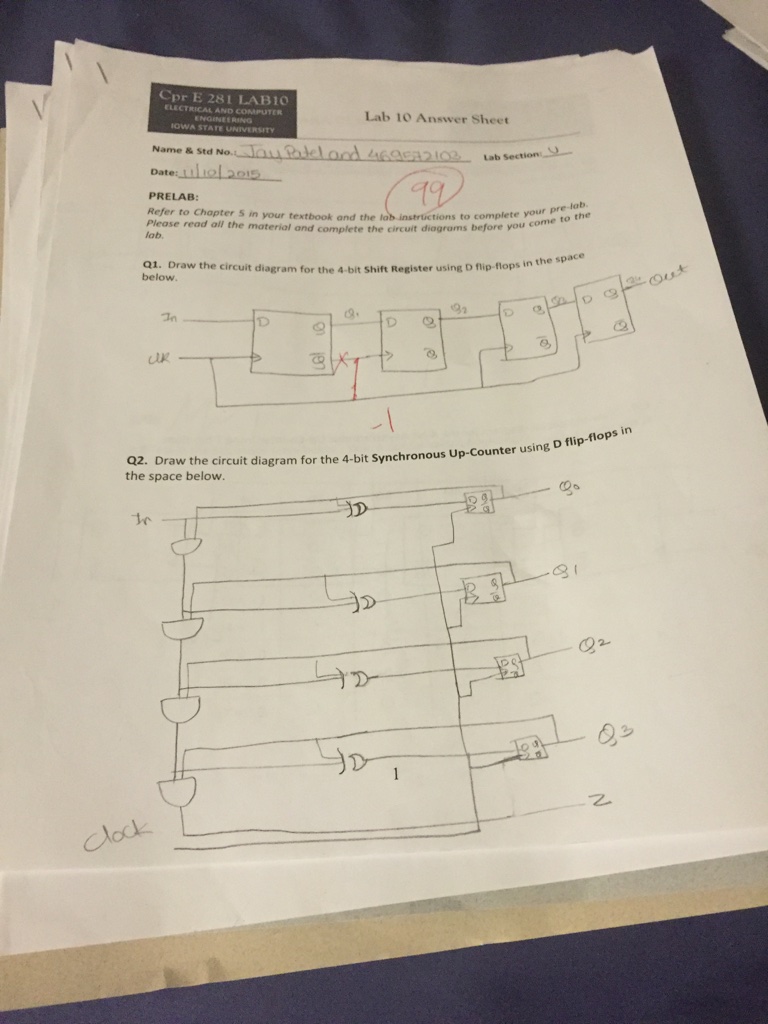 Cpr E 281 LAB10
ELECTRICAL AND COMPUTER
ENGINEERING
IOWA STATE UNIVERSITY
Lab 10 Answer Sheet
Name & Std No.: Jay Patel and 469572103 Lab Section: U
Date: 11/10/2015
99
PRELAB:
Refer to Chapter 5 in your textbook and the lab instructions to complete your pre-lab.
Please read all the material and complete the circuit diagrams before you come to the
lab.
Q1. Draw the circuit diagram for the 4-bit Shift Register using D flip-flops in the space
below.
In D Q Q1 D Q Q2 D Q Q3 D Q Q4 Out
clk Q Q Q Q
-1
Q2. Draw the circuit diagram for the 4-bit Synchronous Up-Counter using D flip-flops in
the space below.
In D Q Q Q0
D Q Q Q1
D Q Q Q2
D Q Q Q3
1
Z
Clock